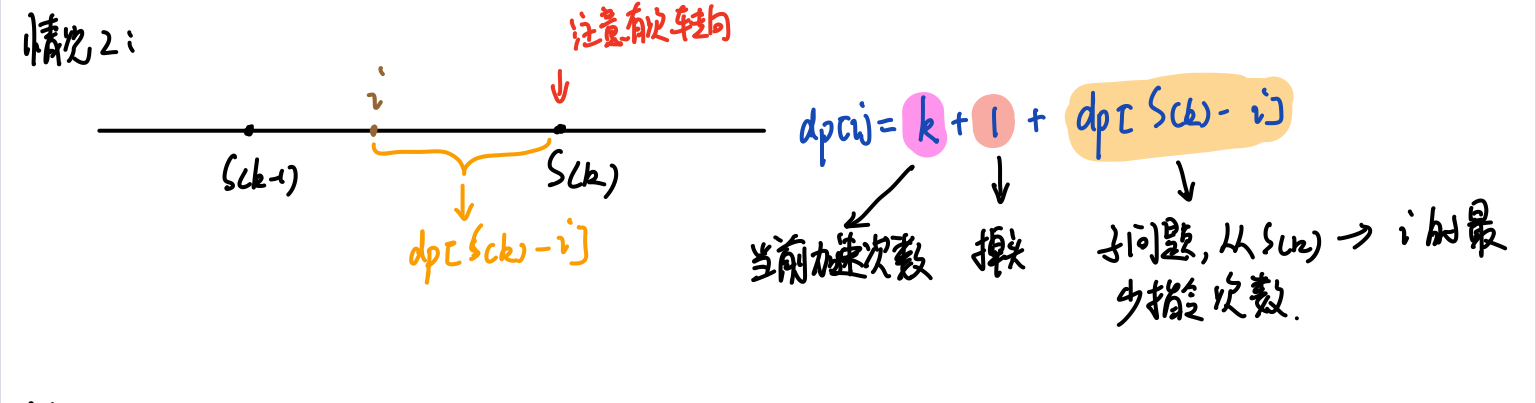 情况2:
注意有次转向
i
S(k-1)
S(k)
dp[S(k)-i]
dp[i]=k+1+dp[S(k)-i]
当前加速次数
掉头
子问题,从S(k)→i的最
少指令次数.